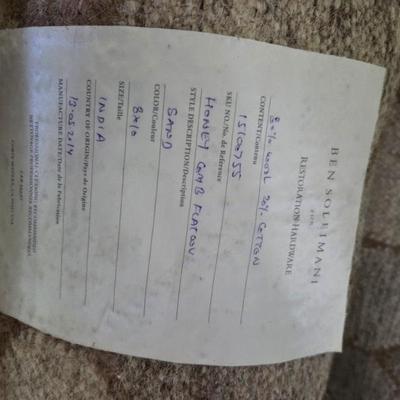 BEN SOLEIMANI
FOR
RESTORATION HARDWARE
80% WOOL 20% COTTON
CONTENT/Contenu
15100755
SKU NO./No. de Reference
HONEY COMB FLATWOV
STYLE DESCRIPTION/Description
SAND
COLOR/Couleur
8x10
SIZE/Taille
INDIA
COUNTRY OF ORIGIN/Pays de Origine
13.05.214
MANUFACTURE DATE/Date de la Fabrication
PROFESSIONAL CLEANING RECOMMENDED
NETTOYAGE PROFESSIONNEL RECOMMANDE